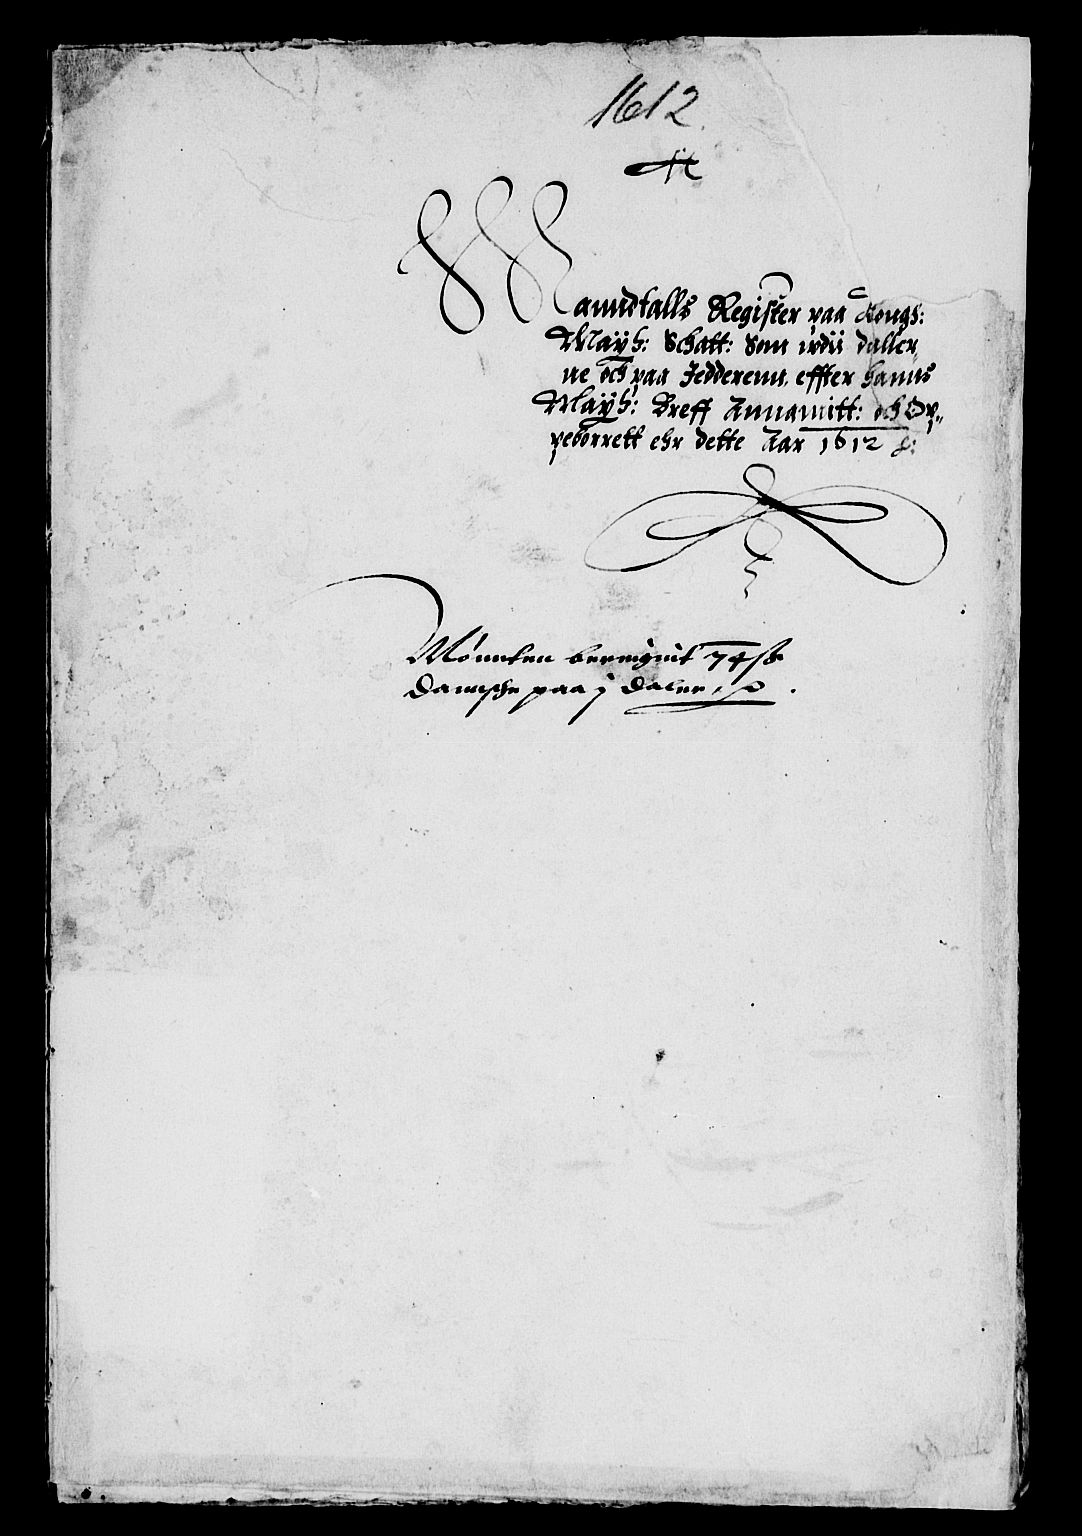 1612.
Manndtalls Register paa Kongs:
Maÿts: Schatt: Som udii daller
ne och paa Jedderenn, effter hanns
Maÿts: Breff Annamitt: och Op„
peborrett ehr dette Aar 1612
Mønnten beregnit 74 sk
Dannsche paa j daler